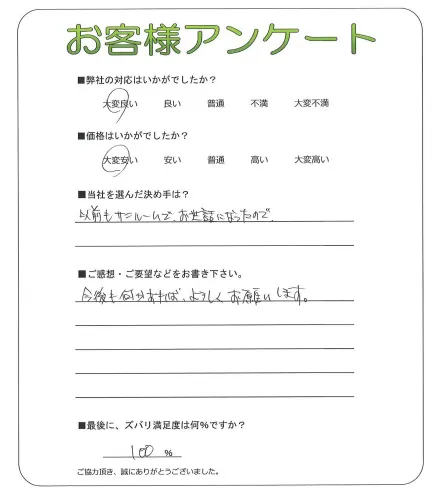 お客様アンケート
■弊社の対応はいかがでしたか?
大変良い 良い 普通 不満 大変不満
■価格はいかがでしたか?
大変安い 安い 普通 高い 大変高い
■当社を選んだ決め手は?
以前もサンルームで、お世話になったので、
■ご感想・ご要望などをお書き下さい。
今後も何かあれば、よろしくお願いします。
■最後に、ズバリ満足度は何%ですか?
100 %
ご協力頂き、誠にありがとうございました。